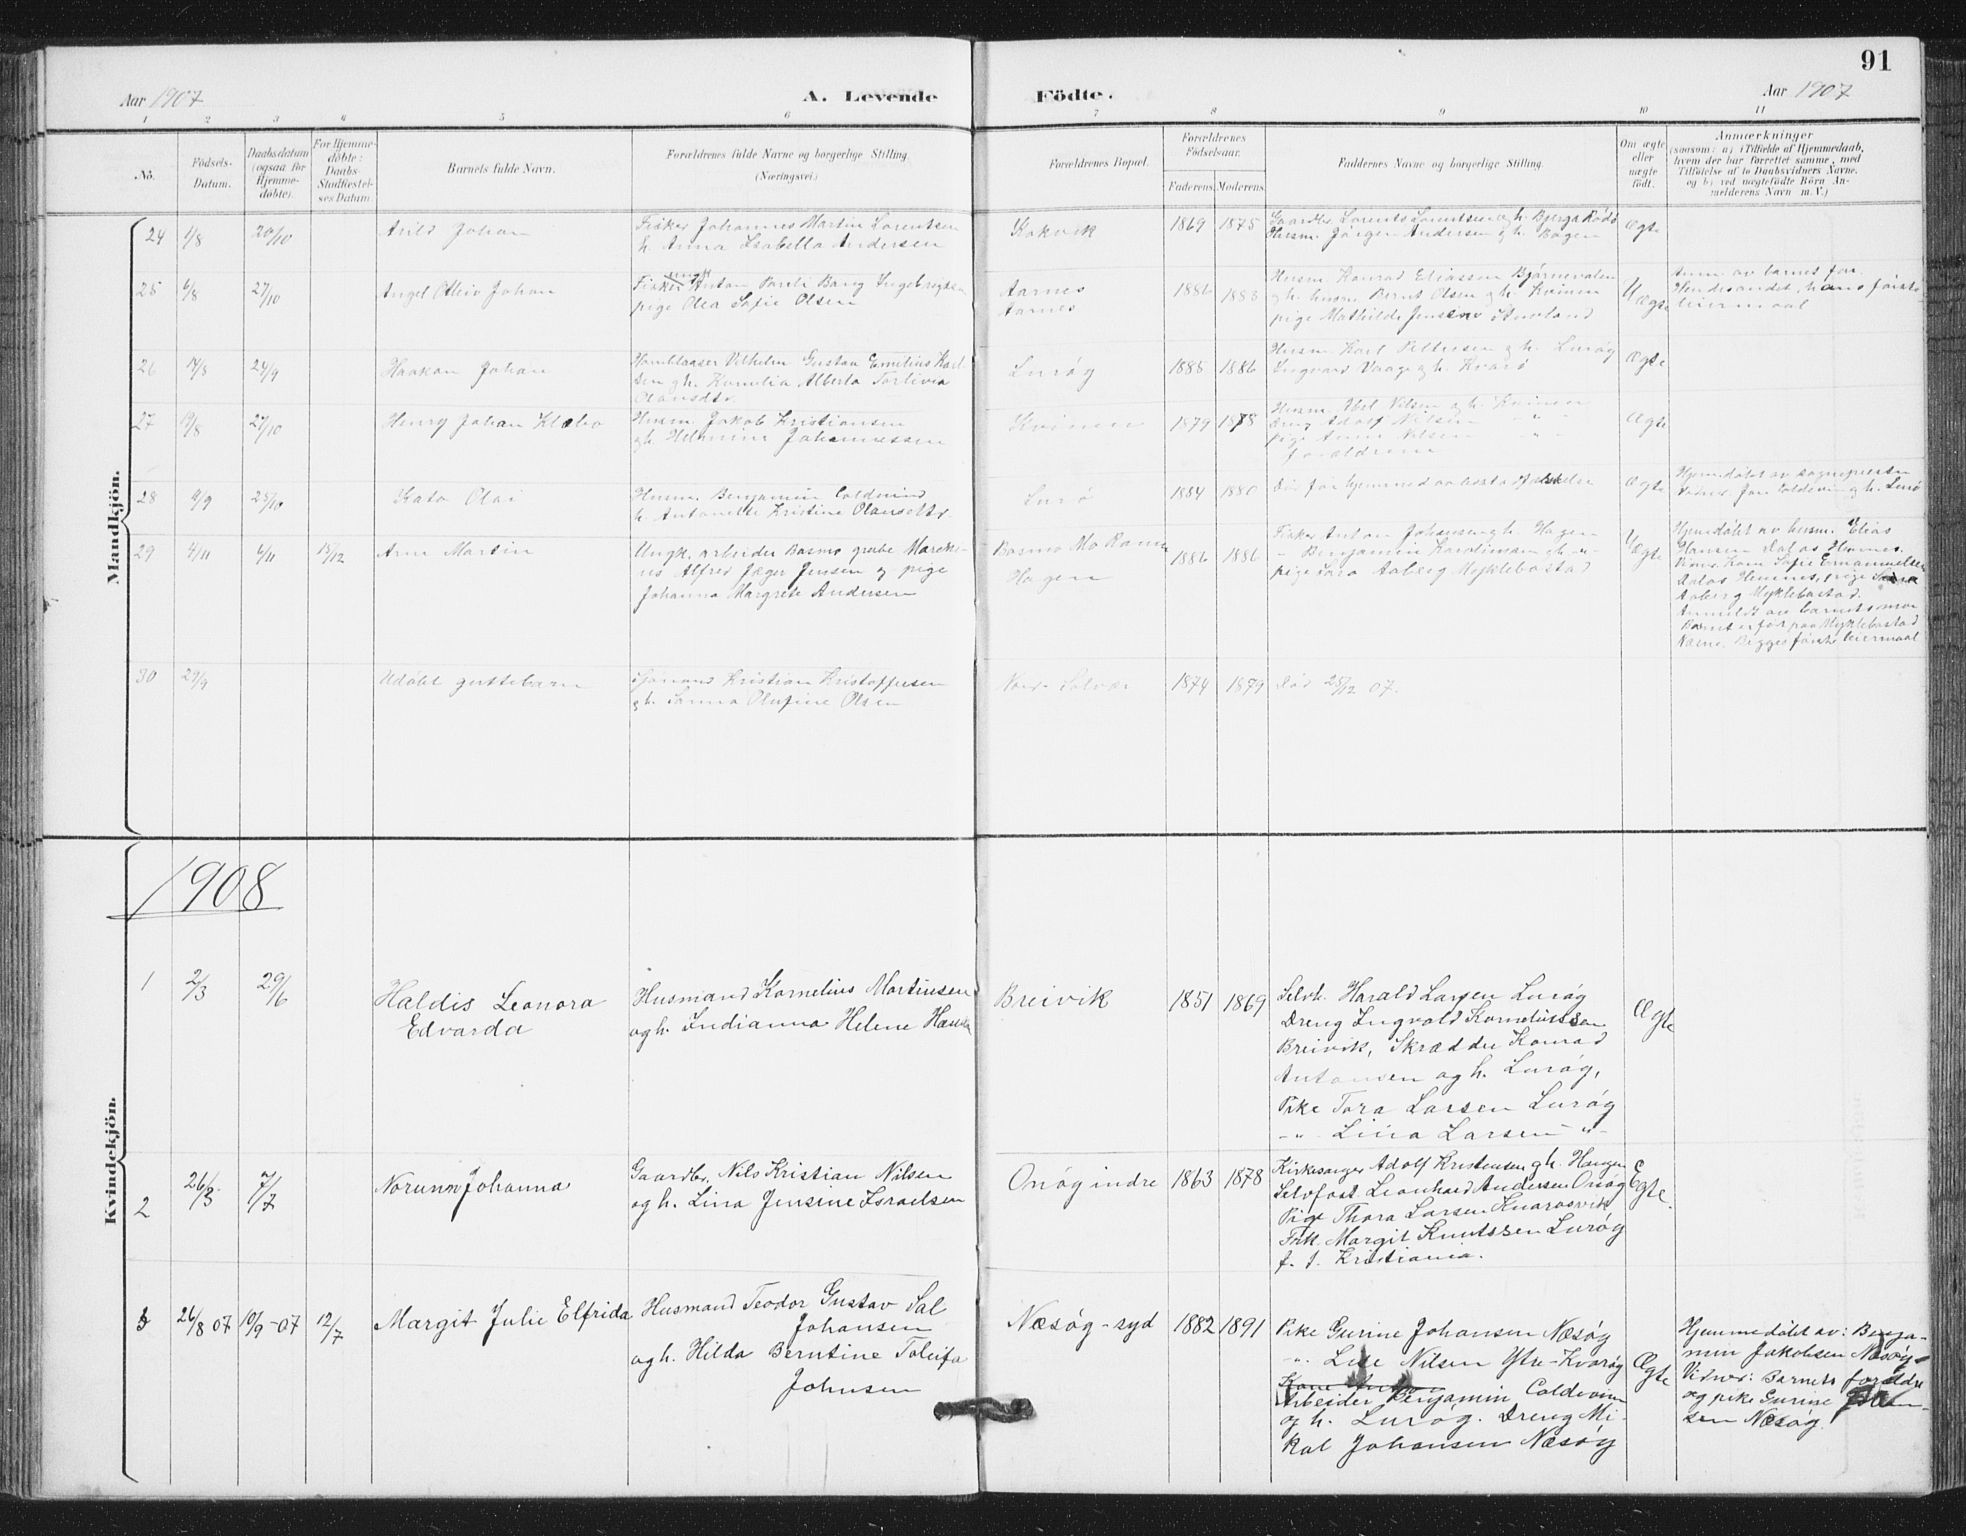 91
Aar 1907
A. Levende
Födte.
Aar 1907
1 2 3 4 5 6 7 8 9 10 11
No.
Födsels-
Datum.
Daabsdatum
(ogsaa for
Hjemme-
döbte).
For Hjemme-
döbte:
Daabs-
Stadfæstel-
ses Datum.
Barnets fulde Navn.
Forældrenes fulde Navne og borgerlige Stilling
(Næringsvei)
Forældrenes Bopæl.
Forældrenes
Födselsaar.
Faderens. Moderens.
Faddernes Navne og borgerlige Stilling.
Om ægte
eller
uægte
födt.
Anmærkninger
(saasom: a) i Tilfælde af Hjemmedaab,
hvem der har forrettet samme, med
Tilföielse af to Daabsvidners Navne.
og b) ved uægtefödte Börn An-
melderens Navn m. V.)
Mandkjön.
24 1/8 20/10
Arild Johan
Fisker Johannes Martin Lorentsen
h. Anna Isabella Andersen
Kokvik
1869 1875
Gaardbr. Lorents Lorentsen og h. Bjerga Rødø
Husm. Jørgen Andersen og h. Bogen
Ægte
25 6/8 27/10
Angel Otleiv Johan
Fisker ungk Anton Parili Bang Ingebrigtsen
pige Olea Sofie Olsen
Aarnes
Aarnes
1886 1883
Husm. Konrad Eliassen Bjørnevalen
og h. husm. Bernt Olsen og h. Kvinen
pige Mathilde Jensen
Uægte
Anm. av barnets far.
leiermaal
26 14/8 24/9
Haakon Johan
Handlaaser Vilhelm Gustav Emelius Karl-
sen og h. Kornelia Alberta Torlivia
Olausdtr.
Lurøg
1885 1886
Husm. Karl Pettersen og h. Lurøg
Ingvard Vaage og h. Kvarø
Ægte
27 19/8 27/10
Henry Johan Klæbo
Husm. Jakob Kristiansen
og h. Helmine Johannessen
Kvinen
1879 1878
Husm. Abel Nilsen og h. Kvinen
Dreng Adolf Nilsen
Pige Anna Nilsen
forældrene
Ægte
28 9/9 25/10
Kato Olai
Husm. Benjamin Coldevind
h. Antonette Kristine Olausdtr.
Lurø
1884 1880
Ægte
Hjemmedøbt av sognepresten
29 4/11 6/11 15/12
Arne Martin
Ungk. arbeider Basmo grube Mareki-
us Alfred Jæger Jensen og pige
Johanna Margrete Andersen
Basmo Mo Ranen
Hagen
1886 1886
Fisker Anton Johansen og h. Hagen
- Benjamin Karolinsson og h. -"-
pige Sara Aaberg Myklebostad
Uægte
Hjemdøbt av husm. Elias
Hansen Dalos Hemnes.
Vidner. Kone Sofie Emanuelsen
Dalos Hemnes, pige Sara
Aaberg Myklebostad.
Anmeldt av barnets mor
Barnet er før paa Myklebostad
Næsne. Begges første leiermaal
30 29/9
Udøbt guttebarn
Hans Kristian Kristoffersen
og h. Sanna Olufine Olsen
Nord-Solvær
1874 1879
Død 25/12 07.
1908
Kvindekjön.
1 2/3 29/6
Haldis Leonora
Edvarda
Husmand Kornelius Martinsen
og h. Indianna Helene Hansen
Breivik
1851 1869
Selvh. Harald Larsen Lurøg
Dreng Ingvald Korneliussen
Breivik, Skrædder Konrad
Antonsen og h. Lurøg,
Pike Tora Larsen Lurøg
-"- Lina Larsen -"-
Ægte
2 26/3 7/7
Norunn Johanna
Gaardbr. Nils Kristian Nilsen
og h. Lina Jensine Israelsen
Onøg indre
1863 1878
Kirkesanger Adolf Kristensen og h. Haugen
Selvfost. Leonhard Andersen Onøg
Pige Thora Larsen Kvarøsvik
Frk. Margit Knutssen Lurøg
f. t. Kristiania.
Egte.
3 26/8 07 10/9-07 12/7
Margit Julie Elfrida
Husmand Teodor Gustav Sal
Johansen
og h. Hilda Berntine Toleifa
Johnsen
Næsøg-syd
1882 1891
Pike Gurine Johansen Næsøg
-"- Lise Nilsen Ytre-Kvarøg
Arbeider Benjamin Coldevin
og h. Lurøg. Dreng Mi-
kal Johansen Næsøg
Ægte
Hjemmedøbt av: Benja-
min Jakobsen Næsøy-
Vidner: Barnets forældre
og pike Gurine Johan-
sen Næsøg.